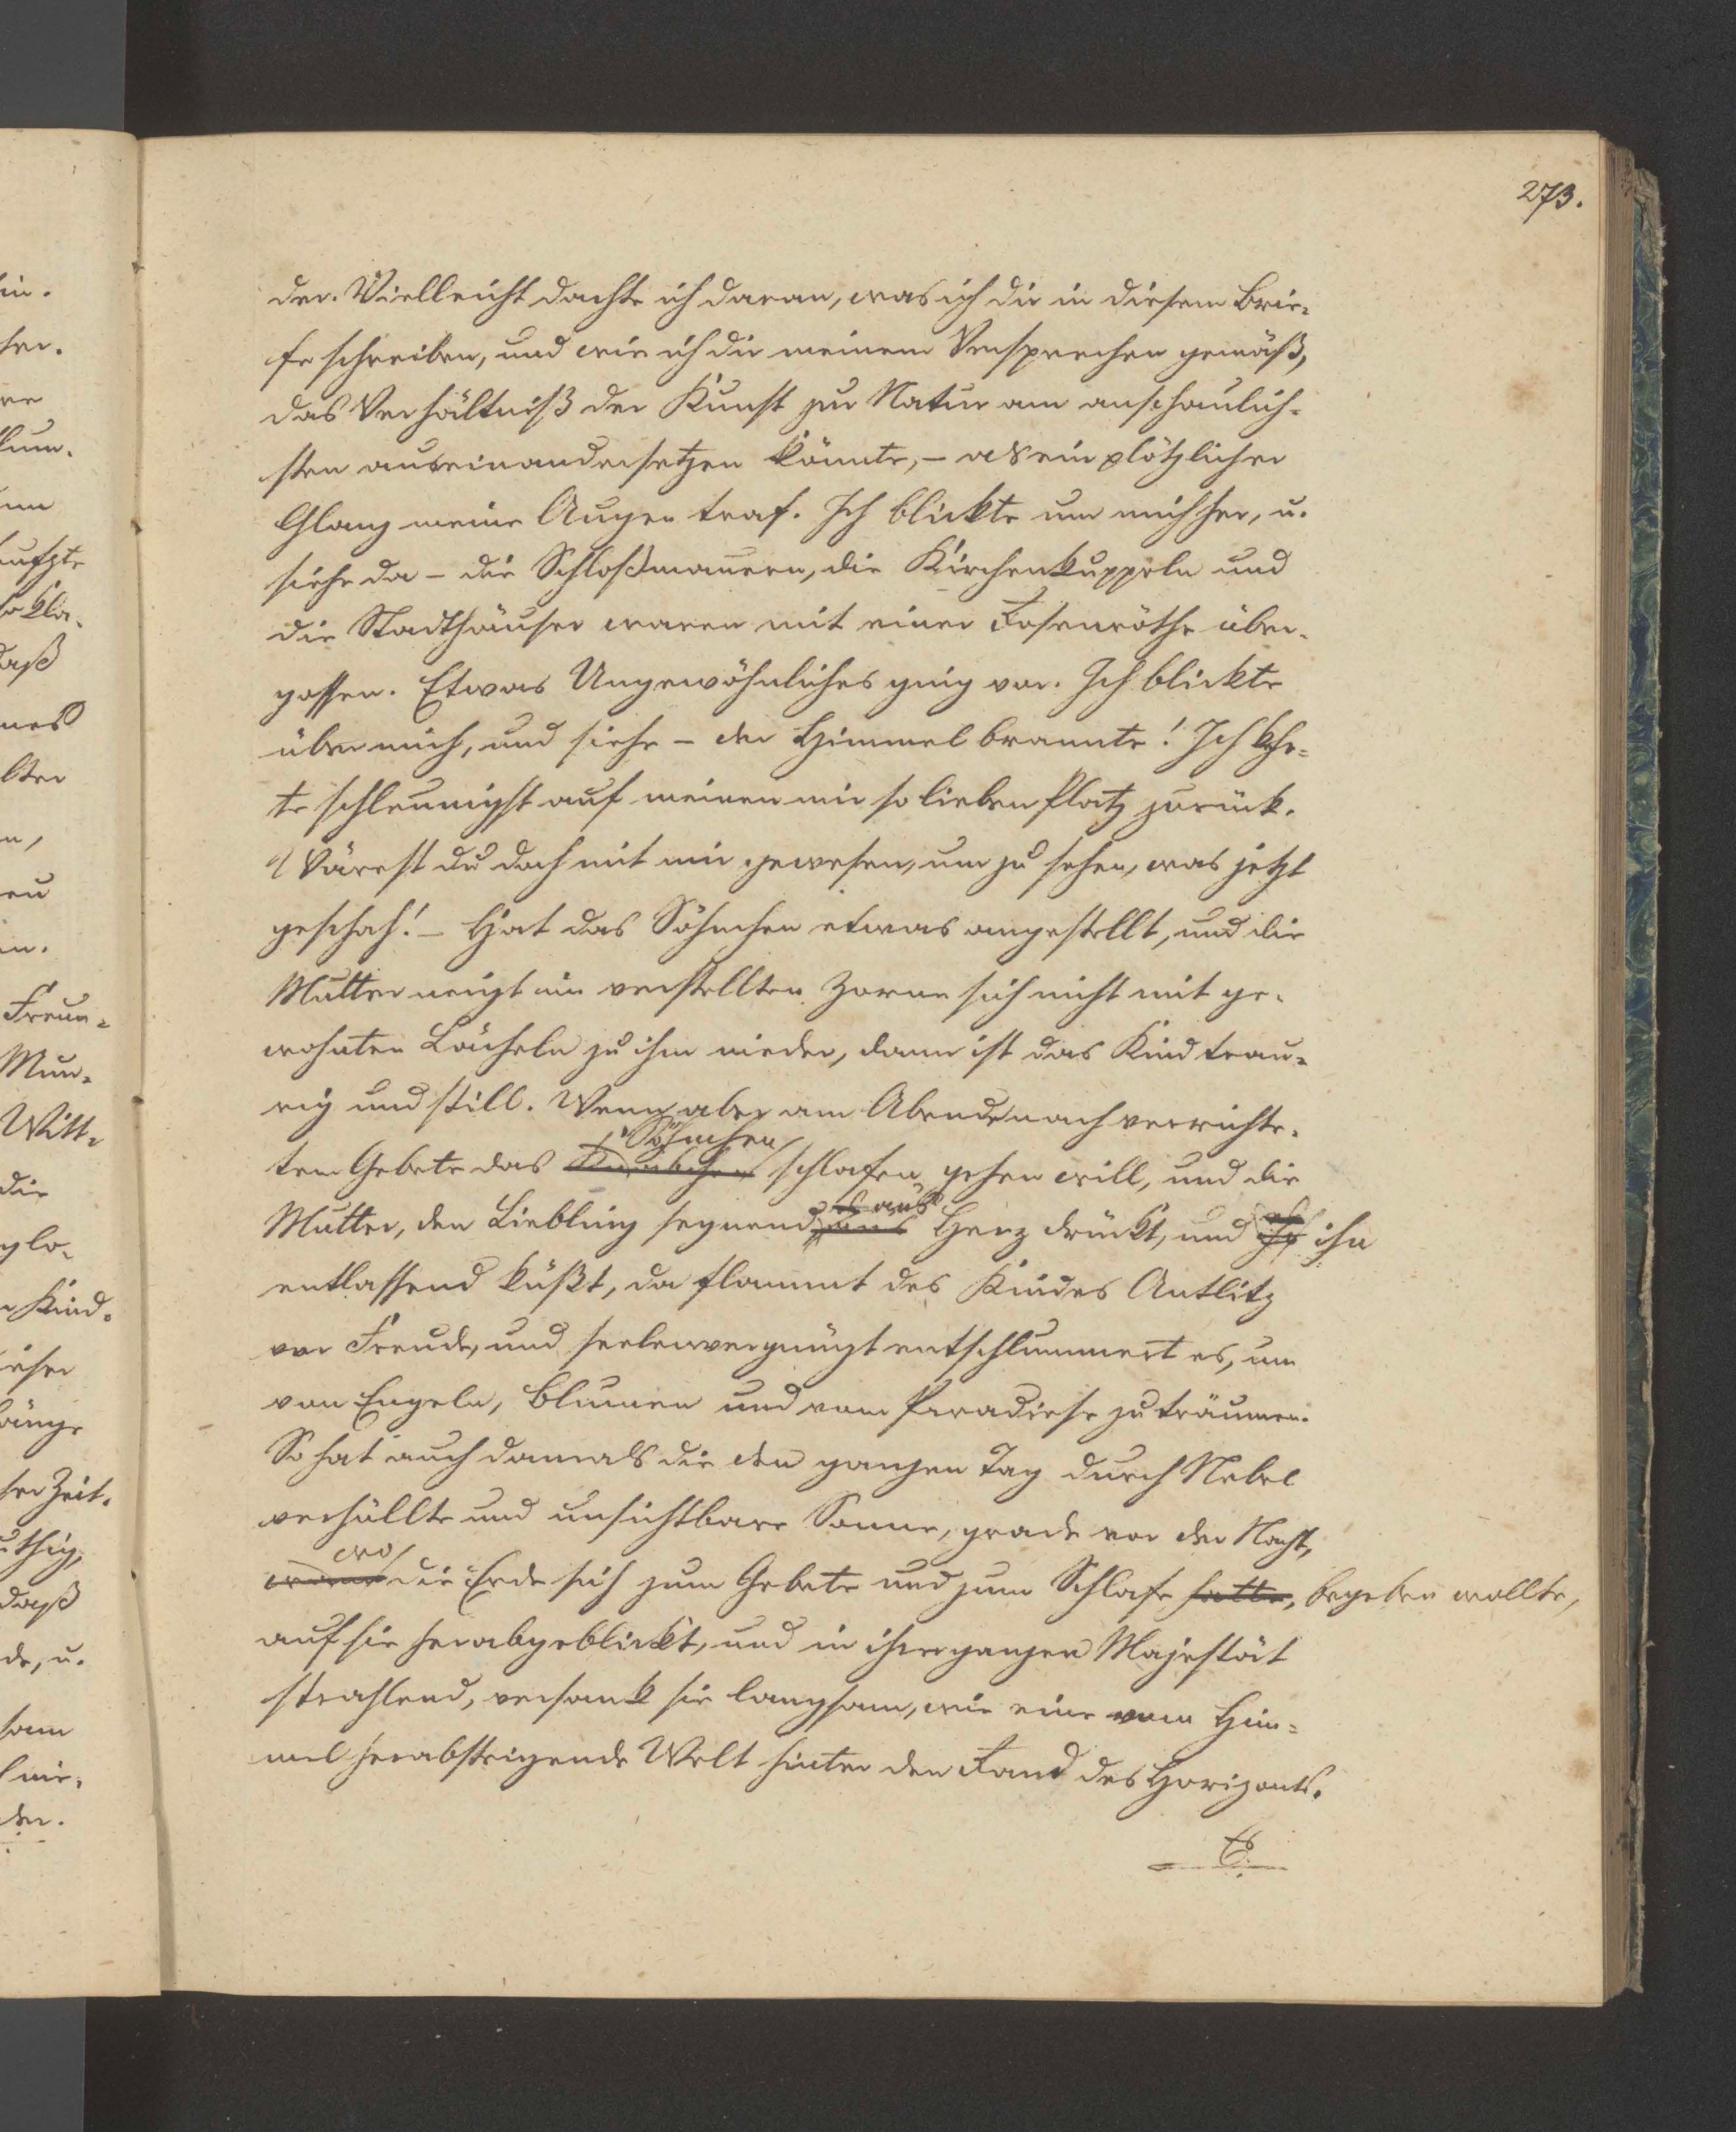 273.
der. Vielleicht dachte ich daran, was ich dir in diesem Brie-
fe schreiben, und wie ich dir meinem Versprechen gemäß,
das Verhältniß der Kunst zur Natur am anschaulich-
sten auseinandersetzen könnte, – als ein plötzlicher
Glanz meine Augen traf. Ich blickte um mich her, u.
siehe da – die Schloßmauern, die Kirchenkuppeln und
die Stadthäuser waren mit einer Rosenröthe über-
gossen. Etwas Ungewöhnliches ging vor. Ich blickte
über mich, und siehe – der Himmel brannte! Ich kehr-
te schleunigst auf meinen mir so lieben Platz zurück.
Wärest du doch mit mir gewesen, um zu sehen, was jetzt
geschah! – Hat das Söhnchen etwas angestellt, und die
Mutter neigt im verstellten Zorne sich nicht mit ge-
wohnten Lächeln zu ihm nieder, dann ist das Kind trau-
rig und still. Wenn aber am Abende nach verrichte-
Söhnchen
tem Gebete das Knäbchen schlafen gehen will, und die
es ans
Mutter, den Liebling segnend, ans Herz drückt, und ihn
entlassend küßt, da flammt des Kindes Antlitz
vor Freude, und seelenvergnügt entschlummert es, um
von Engeln, Blumen und vom Paradiese zu träumen.
So hat auch damals die den ganzen Tag durch Nebel
verhüllte und unsichtbare Sonne, grade vor der Nacht,
wo
die Erde sich zum Gebete und zum Schlafe hatte, begeben wollte,
auf sie herabgeblickt, und in ihrer ganzen Majestät
strahlend, versank sie langsam, wie eine vom Him-
mel herabsteigende Welt hinter den Rand des Horizonts.
in.
daß
Freun-
Mun-
Witt-
die
Kind-
Zeit.
daß
de, u.